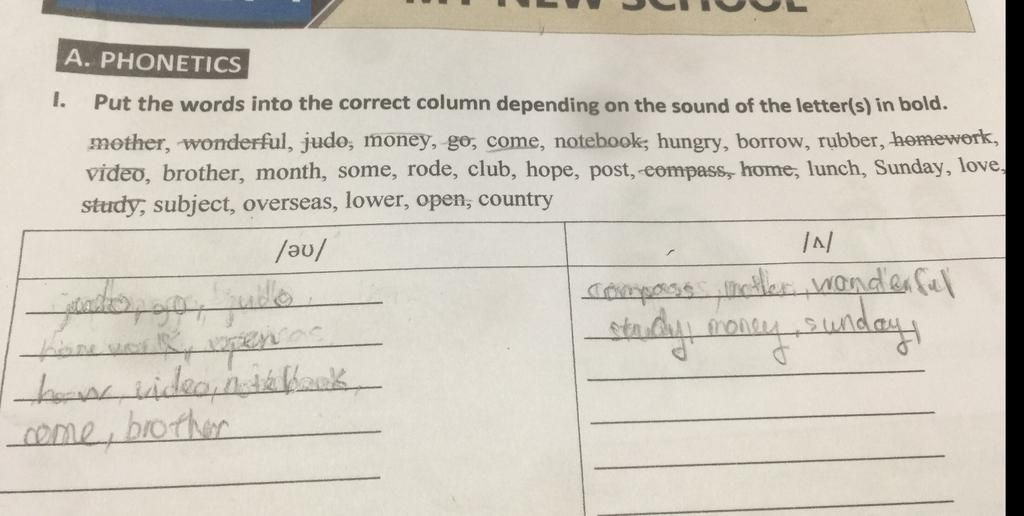 MY NEW SCHOOL
A. PHONETICS
I. Put the words into the correct column depending on the sound of the letter(s) in bold.
mother, wonderful, judo, money, go, come, notebook, hungry, borrow, rubber, homework,
video, brother, month, some, rode, club, hope, post, compass, home, lunch, Sunday, love,
study, subject, overseas, lower, open, country
/əʊ/ /ʌ/
judo, go, judo
compass, mother, wonderful
home work, open
study, money, sunday,
home, video, notebook,
come, brother